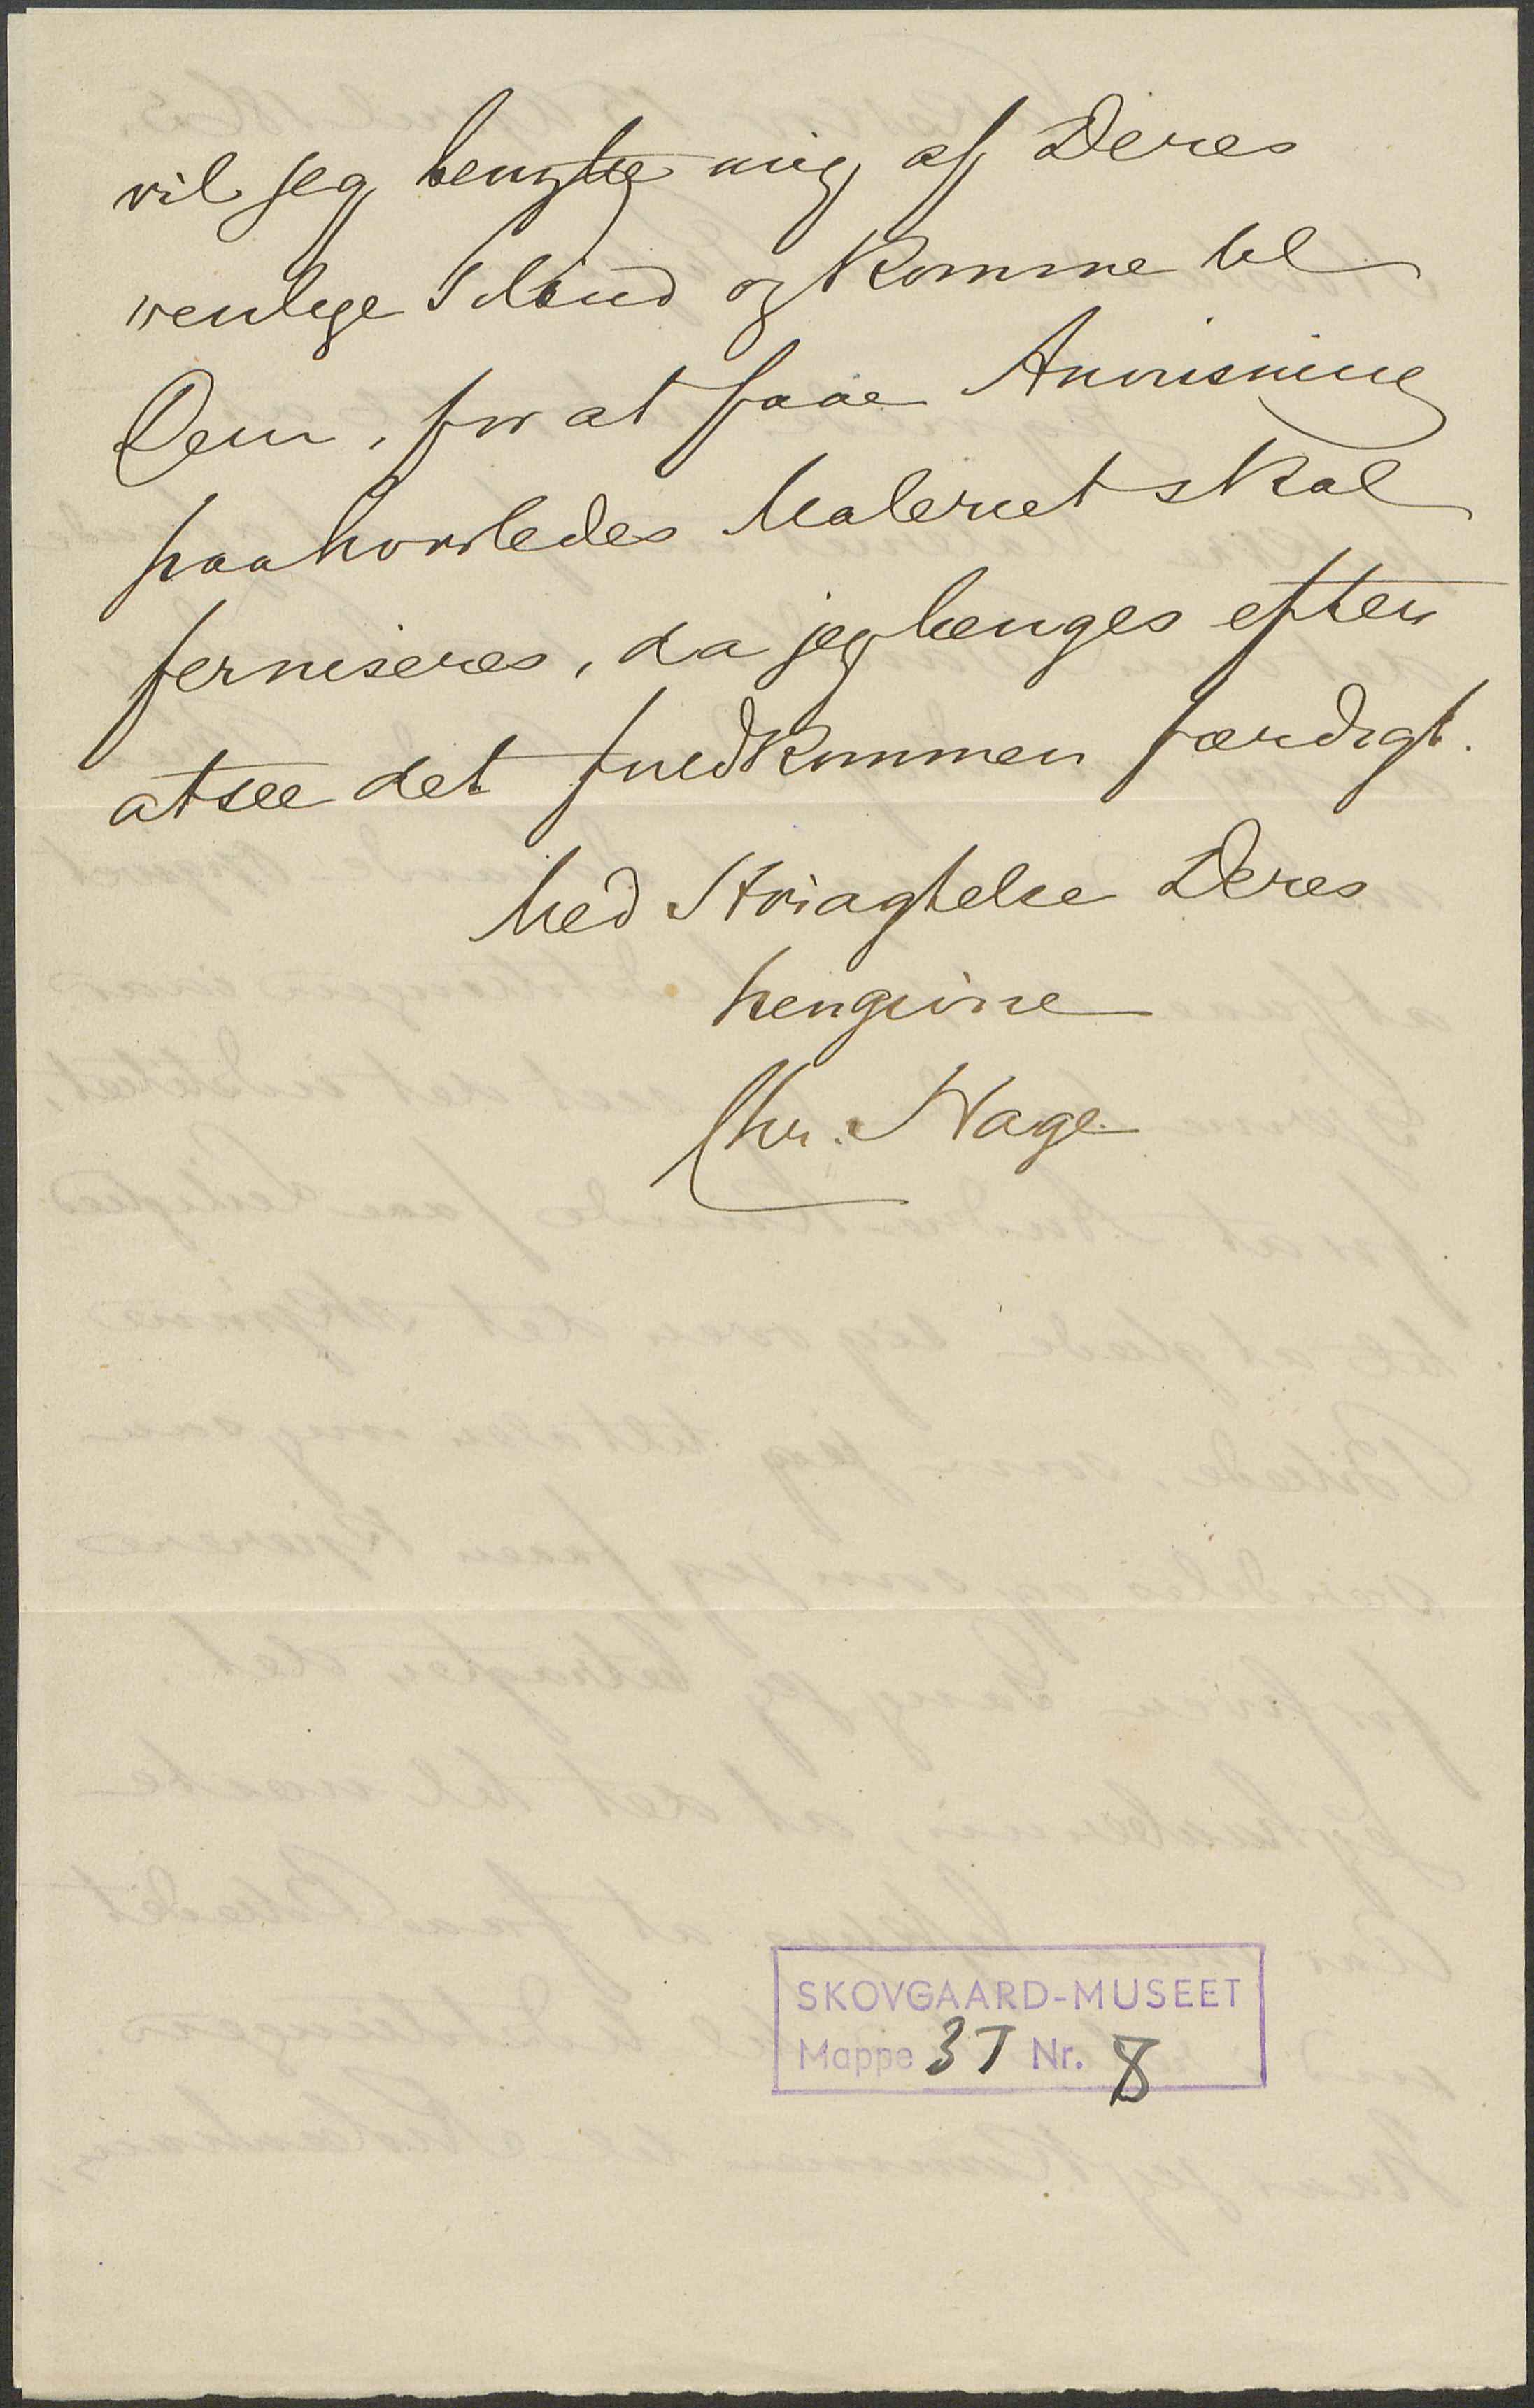 vil jeg benytte mig af Deres
venlige Tilbud og komme til
Dem, for at faae Anvisning
paa hvorledes Maleriet skal
ferniseres, da jeg længes efter
at see det fuldkommen færdigt.
Med Høiagtelse Deres
hengivne
Chr. Hage
SKOVGAARD-MUSEET
Mappe 3T Nr. 8